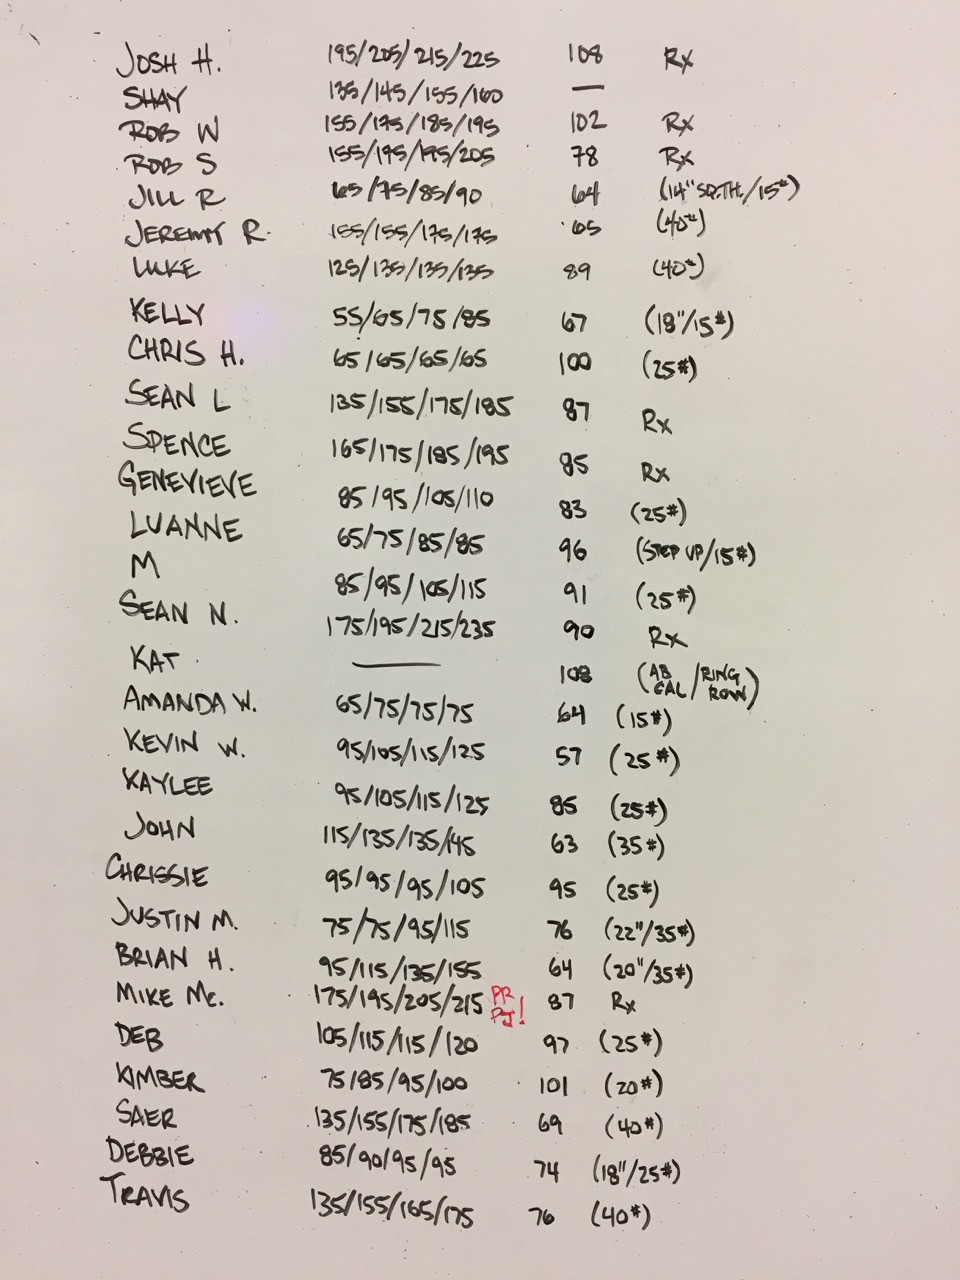 JOSH H. 195/205/215/225 108 Rx
SHAY 135/145/155/160 —
ROB W 155/175/185/195 102 Rx
ROB S 155/195/195/205 78 Rx
JILL R 65/75/85/90 64 (14" SQ.TH./15#)
JEREMY R. 155/155/175/175 65 (40#)
LUKE 125/135/135/135 89 (40#)
KELLY 55/65/75/85 67 (18"/15#)
CHRIS H. 65/65/65/65 100 (25#)
SEAN L 135/155/175/185 87 Rx
SPENCE 165/175/185/195 85 Rx
GENEVIEVE 85/95/105/110 83 (25#)
LUANNE 65/75/85/85 96 (STEP UP/15#)
M 85/95/105/115 91 (25#)
SEAN N. 175/195/215/235 90 Rx
KAT — 108 (AB CAL/RING ROW)
AMANDA W. 65/75/75/75 64 (15#)
KEVIN W. 95/105/115/125 57 (25#)
KAYLEE 95/105/115/125 85 (25#)
JOHN 115/135/135/145 63 (35#)
CHRISSIE 95/95/95/105 95 (25#)
JUSTIN M. 75/75/95/115 76 (22"/35#)
BRIAN H. 95/115/135/155 64 (20"/35#)
MIKE Mc. 175/195/205/215 PR PJ! 87 Rx
DEB 105/115/115/120 97 (25#)
KIMBER 75/85/95/100 101 (20#)
SAER 135/155/175/185 69 (40#)
DEBBIE 85/90/95/95 74 (18"/25#)
TRAVIS 135/155/165/175 76 (40#)